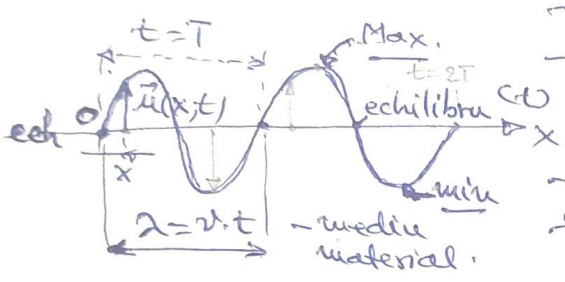 t = T
Max.
t = 2T
O
ū(x,t)
echilibru (t)
ech
x
x
min
λ = v·t
- mediu
material.